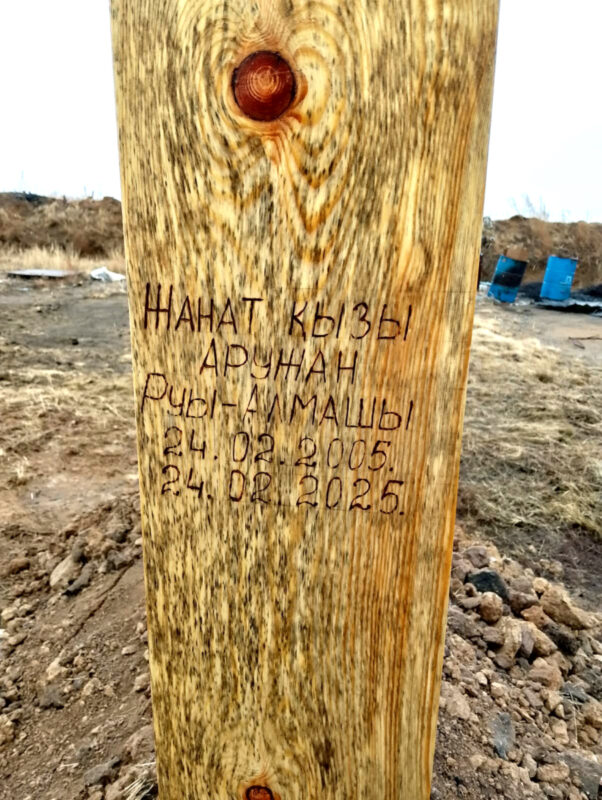 ЖАНАТ ҚЫЗЫ
АРУЖАН
РУЫ-АЛМАШЫ
24.02.2005.
24.02.2025.